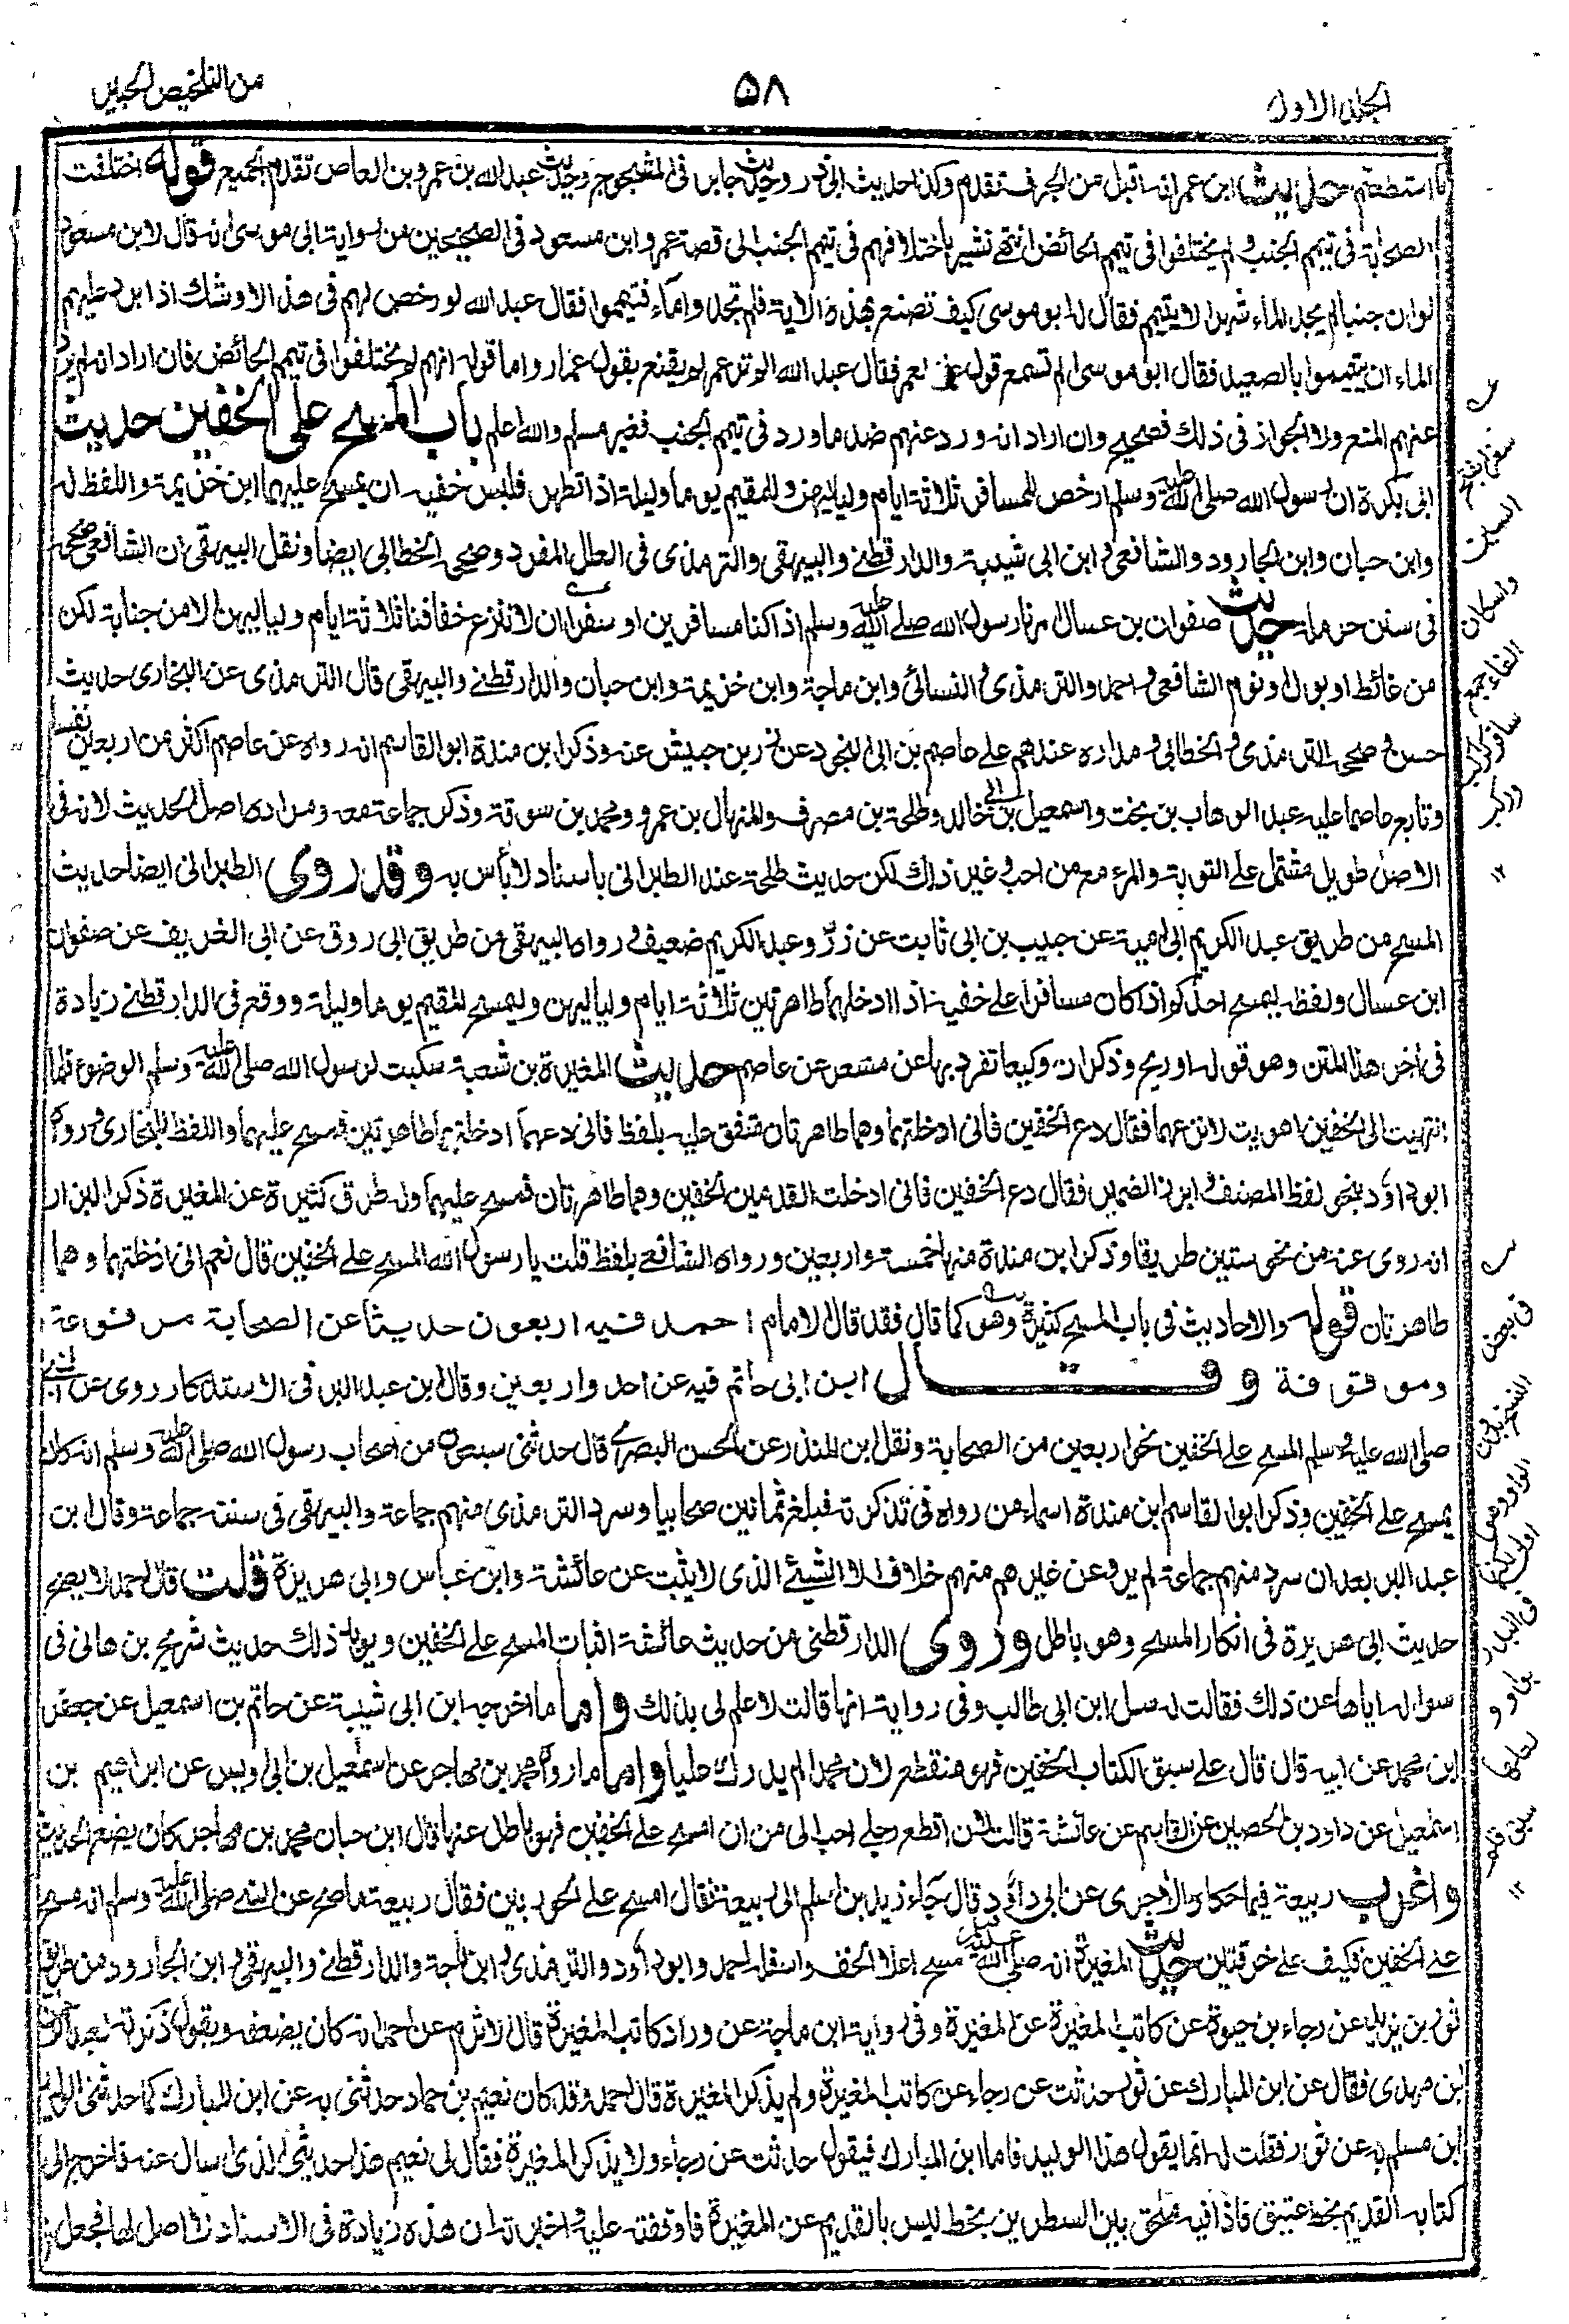 الجلد الاول
۵۸
من التلخيص الحبير
ما استطعتم حديث ابن عمر انه اقبل من الجرف تقدم وكذا حديث ابى ذر وحديث جابر فى المشجوج وحديث عبد الله بن عمرو بن العاص تقدم الجميع قوله اختلفت
الصحابة فى تيمم الجنب ولم يختلفوا فى تيمم الحائض انتهى نشير باختلافهم فى تيمم الجنب الى قصة عمر وابن مسعود فى الصحيحين من رواية ابى موسى انه قال لابن مسعود
لو ان جنبا لم يجد الماء شهرا لا يتيمم فقال له ابو موسى كيف تصنع بهذه الاية فلم تجدوا ماء فتيمموا فقال عبد الله لو رخص لهم فى هذا لاوشك اذا برد عليهم
الماء ان يتيمموا بالصعيد فقال ابو موسى الم تسمع قول عمار لعمر فقال عبد الله الم تر عمر لم يقنع بقول عمار واما قوله انهم لم يختلفوا فى تيمم الحائض فان اراد انه لم يرد
عنهم المنع ولا الجواز فى ذلك فصحيح وان اراد انه ورد عنهم ضد ما ورد فى تيمم الجنب فغير مسلم والله اعلم باب المسح على الخفين حديث
ابى بكرة ان رسول الله صلى الله عليه وسلم ارخص للمسافر ثلاثة ايام ولياليهن وللمقيم يوما وليلة اذا تطهر فلبس خفيه ان يمسح عليهما ابن خزيمة واللفظ له
وابن حبان وابن الجارود والشافعى وابن ابى شيبة والدارقطنے والبيهقى والترمذى فى العلل المفرد وصححه الخطابى ايضا ونقل البيهقى ان الشافعى صححه
فى سنن حرملة حديث صفوان بن عسال امرنا رسول الله صلے الله عليه وسلم اذا كنا مسافرين او سفرا ان لا ننزع خفافنا ثلاثة ايام ولياليهن الا من جنابة لكن
من غائط او بول او نوم الشافعى واحمد والترمذى والنسائى وابن ماجة وابن خزيمة وابن حبان والدارقطنے والبيهقى قال الترمذى عن البخارى حديث
حسن وصححه الترمذى والخطابى ومداره عندهم على عاصم بن ابى النجود عن زر بن حبيش عنه وذكر ابن مندة ابو القاسم انه رواه عن عاصم اكثر من اربعين نفسا
وتابع عاصما عليه عبد الوهاب بن بخت واسمعيل بن ابى خالد وطلحة بن مصرف والمنهال بن عمرو ومحمد بن سوقة وذكر جماعة معه ومراده اصل الحديث لانه فى
الاصل طويل مشتمل على التوبة والمرء مع من احب وغير ذلك لكن حديث طلحة عند الطبرانى باسناد لا بأس به وقد روى الطبرانى ايضا حديث
المسح من طريق عبد الكريم ابى امية عن حبيب بن ابى ثابت عن زر وعبد الكريم ضعيف ورواه البيهقى من طريق ابى روق عن ابى الغريف عن صفوان
ابن عسال ولفظه ليمسح احدكم اذا كان مسافرا على خفيه اذا ادخلهما طاهرتين ثلاثة ايام ولياليهن وليمسح المقيم يوما وليلة ووقع فى الدارقطنے زيادة
فى اخر هذا المتن وهو قوله او ريح وذكر ان وكيعا تفرد بها عن مسعر عن عاصم حديث المغيرة بن شعبة سكبت لرسول الله صلى الله عليه وسلم الوضوء فلما
انتهيت الى الخفين اهويت لانزعهما فقال دع الخفين فانى ادخلتهما وهما طاهرتان متفق عليه بلفظ فانى دعهما ادخلتهما طاهرتين فمسح عليهما واللفظ للبخارى ورواه
ابو داود بنحو لفظ المصنف وابرز الضمير فقال دع الخفين فانى ادخلت القدمين الخفين وهما طاهرتان فمسح عليهما وله طرق كثيرة عن المغيرة ذكر البزار
انه روى عنه من نحو ستين طريقا وذكر ابن مندة منها خمسة واربعين ورواه الشافعے بلفظ قلت يا رسول الله المسح على الخفين قال نعم انى ادخلتهما وهما
طاهرتان قوله والاحاديث فى باب المسح كثيرة وهو كما قال فقد قال الامام احمد فيه اربعون حديثا عن الصحابة مرفوعة
وموقوفة وقال ابن ابى حاتم فيه عن احد واربعين وقال ابن عبد البر فى الاستذكار روى عن النبى
صلى الله عليه وسلم المسح على الخفين نحو اربعين من الصحابة ونقل ابن المنذر عن الحسن البصرى قال حدثنى سبعون من اصحاب رسول الله صلى الله عليه وسلم انه كان
يمسح على الخفين وذكر ابو القاسم ابن مندة اسماء من رواه فى تذكرته فبلغ ثمانين صحابيا وسرد الترمذى منهم جماعة والبيهقى فى سننه جماعة وقال ابن
عبد البر بعد ان سرد منهم جماعة لم يرو عن غيرهم منهم خلاف الا الشئے الذى لا يثبت عن عائشة وابن عباس وابى هريرة قلت قال احمد لا يصح
حديث ابى هريرة فى انكار المسح وهو باطل وروى الدارقطنى من حديث عائشة اثبات المسح على الخفين ويؤيد ذلك حديث شريح بن هانى فى
سواله اياها عن ذلك فقالت له سل ابن ابى طالب وفى رواية انها قالت لا علم لى بذلك واما ما اخرجه ابن ابى شيبة عن حاتم بن اسمعيل عن جعفر
ابن محمد عن ابيه قال قال على سبق الكتاب الخفين فهو منقطع لان محمدا لم يدرك عليا واما ما رواه محمد بن مهاجر عن اسمعيل بن ابى اويس عن ابراهيم بن
اسمعيل عن داود بن الحصين عن القاسم عن عائشة قالت لئن اقطع رجلے احب الى من ان امسح على الخفين فهو باطل عنها قال ابن حبان محمد بن مهاجر كان يضع الحديث
واغرب ربيعة فيما حكاه الآجرى عن ابى داؤد قال جاء زيد بن اسلم الى ربيعة فقال امسح على الجوربين فقال ربيعة ما صح عن النبى صلى الله عليه وسلم انه مسح
على الخفين فكيف على خرقتين حديث المغيرة انه صلى الله عليه وسلم مسح اعلا الخف واسفله احمد وابو داود والترمذى وابن ماجة والدارقطنے والبيهقى وابن الجارود من طريق
ثور بن يزيد عن رجاء بن حيوة عن كاتب المغيرة عن المغيرة وفى رواية ابن ماجة عن وراد كاتب المغيرة قال الاثرم عن احمد انه كان يضعفه ويقول ذكرته لعبد الرحمن
بن مهدى فقال عن ابن المبارك عن ثور حدثت عن رجاء عن كاتب المغيرة ولم يذكر المغيرة قال احمد وقد كان نعيم بن حماد حدثنى به عن ابن المبارك كما حدثنى الوليد
ابن مسلم به عن ثور فقلت له انما يقول هذا الوليد فاما ابن المبارك فيقول حدثت عن رجاء ولا يذكر المغيرة فقال لى نعيم هذا حديثى الذى اسال عنه فاخرج الى
كتابه القديم بخط عتيق فاذا فيه ملحق بين السطرين بخط ليس بالقديم عن المغيرة فاوقفته عليه واخبرته ان هذه زيادة فى الاسناد لا اصل لها فجعل
سفر بفتح
السين
واسكان
الفاء جمع
سافر كركب
وركب
۱۲
فى بعض
النسخ